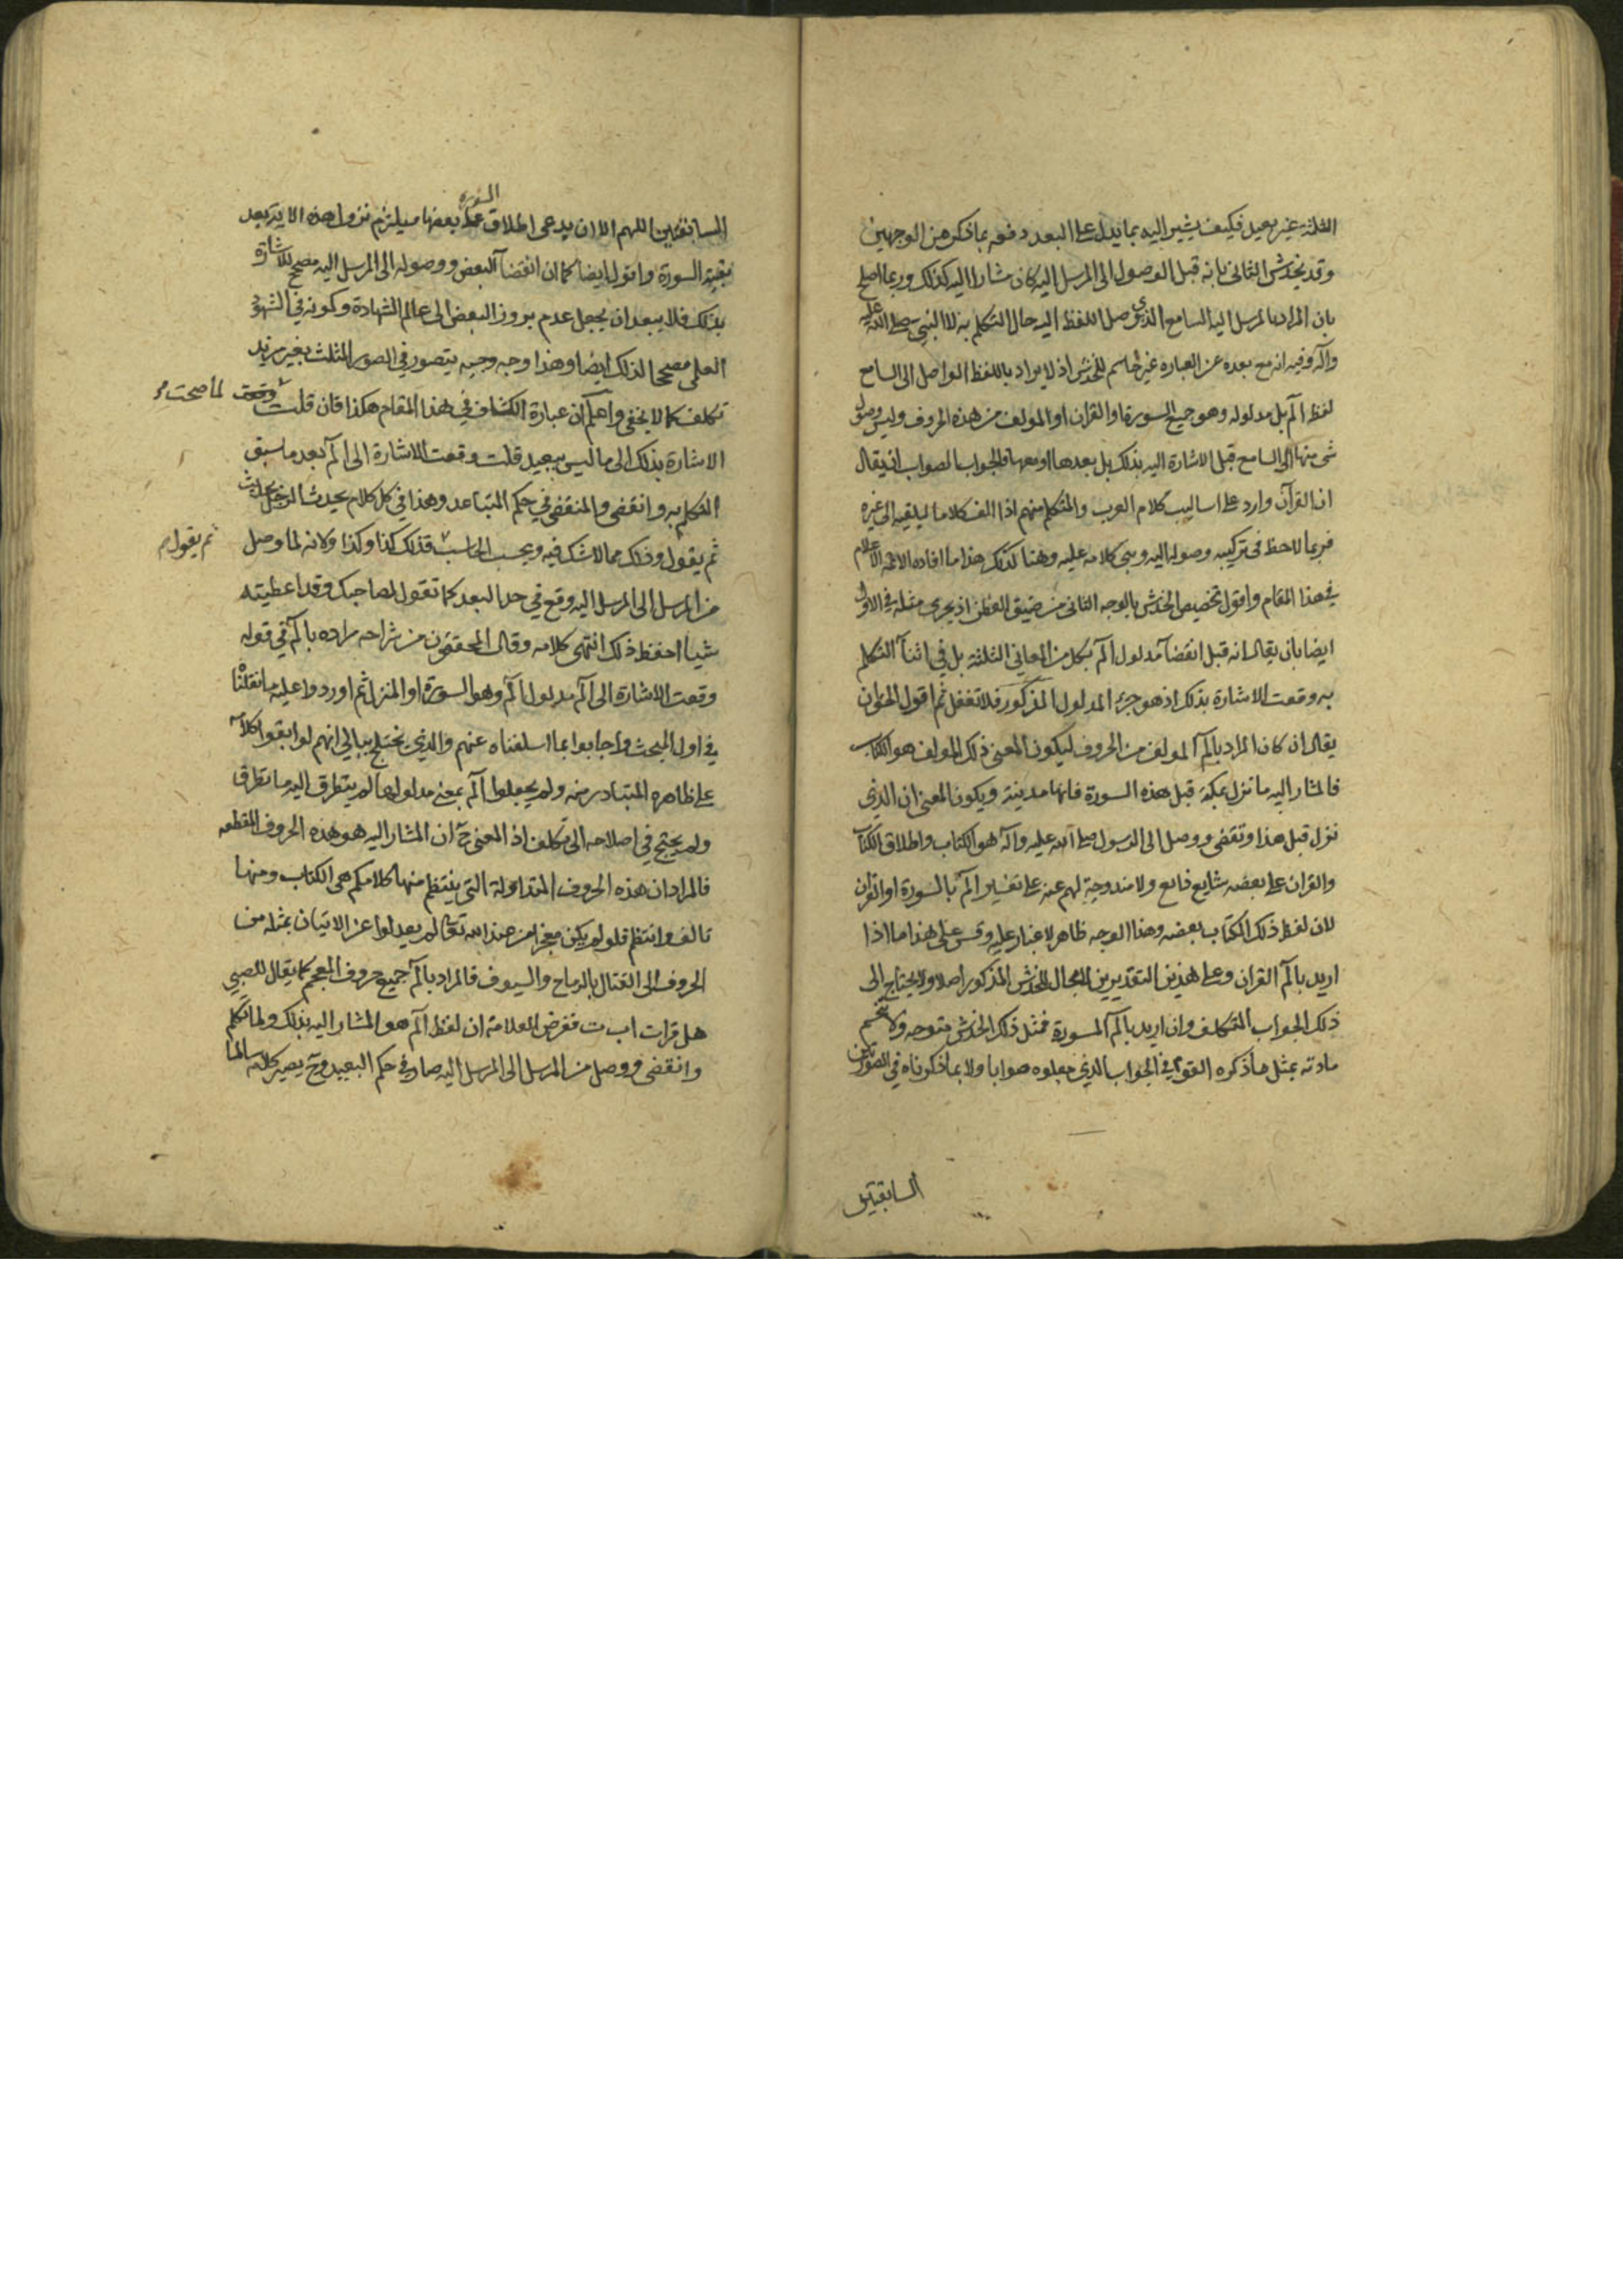 الثلثة غير بعيد فكيف يشير اليه بما يدل على البعد دفعه بما ذكر من الوجهين
وقد يخدش الثاني بانه قبل الوصول الى المرسل اليه كان مشارا اليه كذلك وربما اصلح
بان المراد بالمرسل اليه السامع الذي وصل اللفظ اليه حال التكلم به لا النبي صلى الله عليه
وآله وفيه انه مع بعده عن العبارة غير حاسم للخدش اذ لا يراد باللفظ الواصل الى السامع
لفظ الٓم بل مدلوله وهو جميع السورة او القران او المولف من هذه الحروف وليس وصول
شئ منها الى السامع قبل الاشارة اليه بذلك بل بعدها او معها فالجواب الصواب ان يقال
ان القرآن وارد على اساليب كلام العرب والمتكلم منهم اذا الف كلاما ليلقيه الى غيره
فربما لاحظ في تركيبه وصوله اليه وبنى كلامه عليه وهنا كذلك هذا ما افاده الائمة الاعلام
في هذا المقام واقول تخصيص الخدش بالوجه الثاني من ضيق العطن اذ يجرى مثله في الاول
ايضا بان يقال انه قبل انقضآ مدلول الٓم بكل من المعاني الثلثة بل في اثنآ التكلم
به وقعت الاشارة بذلك اذ هو جزء المدلول المذكور فلا تغفل ثم اقول الحق ان
يقال ان كان المراد بالٓم المولف من الحروف ليكون المعنى ذلك المولف هو الكتاب
فالمشار اليه ما نزل بمكة قبل هذه السورة فانها مدنية ويكون المعنى ان الذي
نزل قبل هذا وتقضى ووصل الى الرسول صلى الله عليه وآله هو الكتاب واطلاق الكتاب
والقران على بعضه شايع ذايع ولا مندوحة لهم عنه على تفسير الٓم بالسورة او القران
لان لفظ ذلك الكتاب بعضه وهذا الوجه ظاهر لا غبار عليه وقس على هذا ما اذا
اريد بالٓم القران وعلى هذين التقديرين لا مجال للخدش المذكور اصلا ولا يحتاج الى
ذلك الجواب المتكلف وان اريد بالٓم السورة فمثل ذلك الخدش متوجه ولا تنحسم
مادته بمثل ما ذكره القوم في الجواب الذي جعلوه صوابا ولا بما ذكرناه في الصورتين
السابقتين
السابقتين اللهم الا ان يدعى اطلاق السورة على بعضها ويلتزم نزول هذه الاية بعد
بقية السورة واقول ايضا كما ان انقضآ البعض ووصوله الى المرسل اليه مصحح للاشارة
بذلك فلا يبعد ان يجعل عدم بروز البعض الى عالم الشهادة وكونه في الشهود
العلمي مصححا لذلك ايضا وهذا وجه وجيه يتصور في الصور الثلث بغير مزيد
تكلف كما لا يخفى واعلم ان عبارة الكشاف في هذا المقام هكذا فان قلت لم صحت
الاشارة بذلك الى ما ليس ببعيد قلت وقعت الاشارة الى الٓم بعد ما سبق
التكلم به وانقضى والمنقضى في حكم المتباعد وهذا في كل كلام يحدث الرجل بحديث
ثم يقول وذلك مما لا شك فيه ويحسب الحاسب ثم يقول فذلك كذا وكذا ولانه لما وصل
من المرسل الى المرسل اليه وقع في حد البعد كما تقول لصاحبك وقد اعطيته
شيا احفظ ذلك انتهى كلامه وقال المحققون من شراحه مراده بالٓم في قوله
وقعت الاشارة الى الٓم مدلول الٓم وهو السورة او المنزل ثم اوردوا عليه ما نقلنا
في اول المبحث واجابوا بما اسلفناه عنهم والذي يختلج ببالي انهم لو ابقوا كلامه
على ظاهره المتبادر منه ولم يجعلوا الٓم بمعنى مدلولها لم يتطرق اليه ما تطرق
ولم يحتج في اصلاحه الى تكلف اذ المعنى ح ان المشار اليه هو هذه الحروف المقطعه
فالمراد ان هذه الحروف المتداولة التي ينتظم منها كلامكم هي الكتاب ومنها
تالف وانتظم فلو لم يكن معجزا من عند الله تعالى لم يعدلوا عن الاتيان بمثله من
الحروف الى القتال بالرماح والسيوف فالمراد بالٓم جميع حروف المعجم كما يقال للصبي
هل قرات اب ت فغرض العلامة ان لفظ الٓم هو المشار اليه بذلك ولما تكلم
وانقضى ووصل من المرسل الى المرسل اليه صار في حكم البعيد وح يصير كلامه سالما